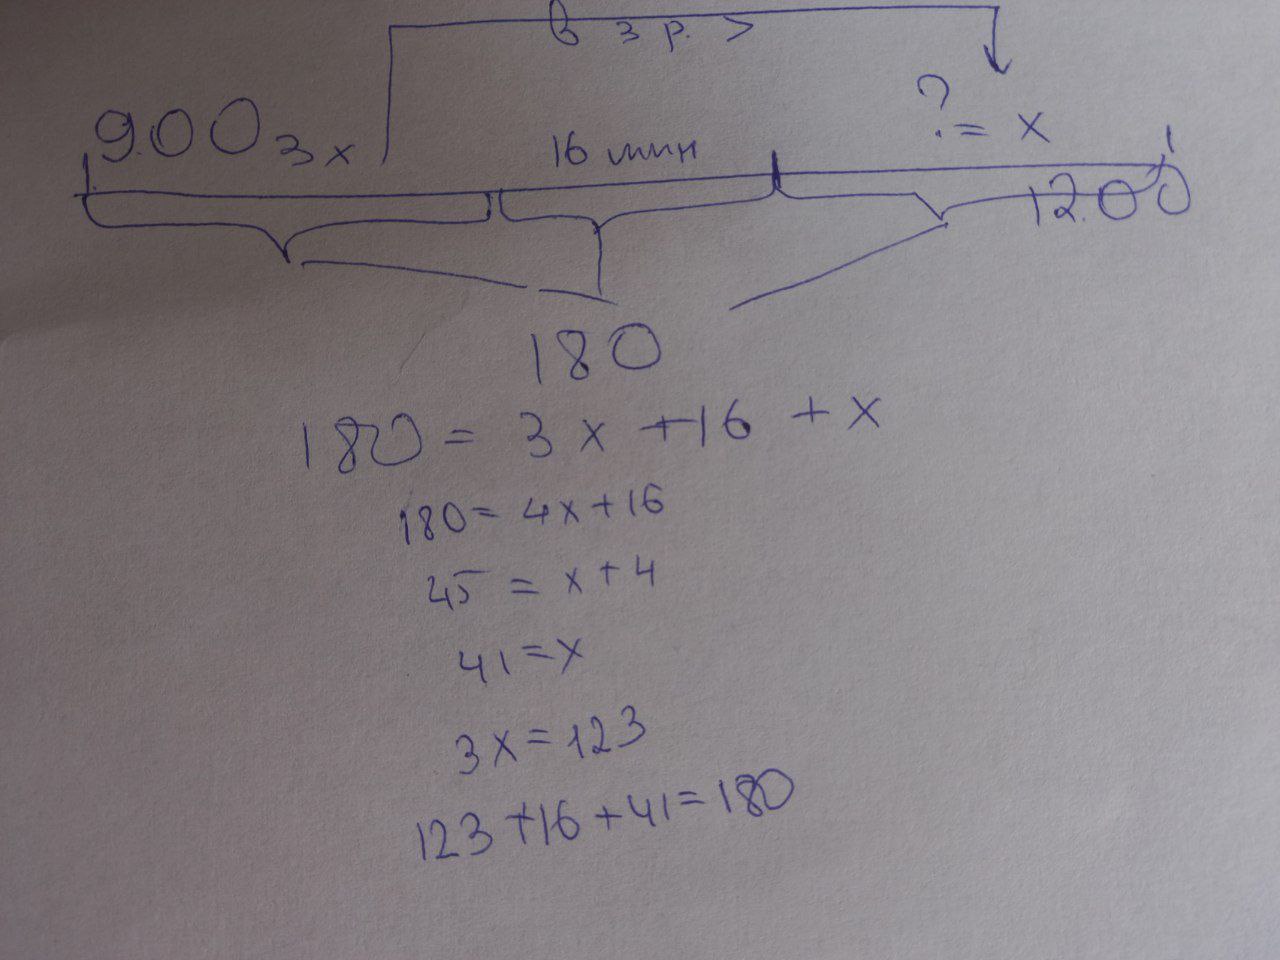 в 3 р. >
9.00 3x 16 мин ? = x
12.00
180
180 = 3x + 16 + x
180 = 4x + 16
45 = x + 4
41 = x
3x = 123
123 + 16 + 41 = 180